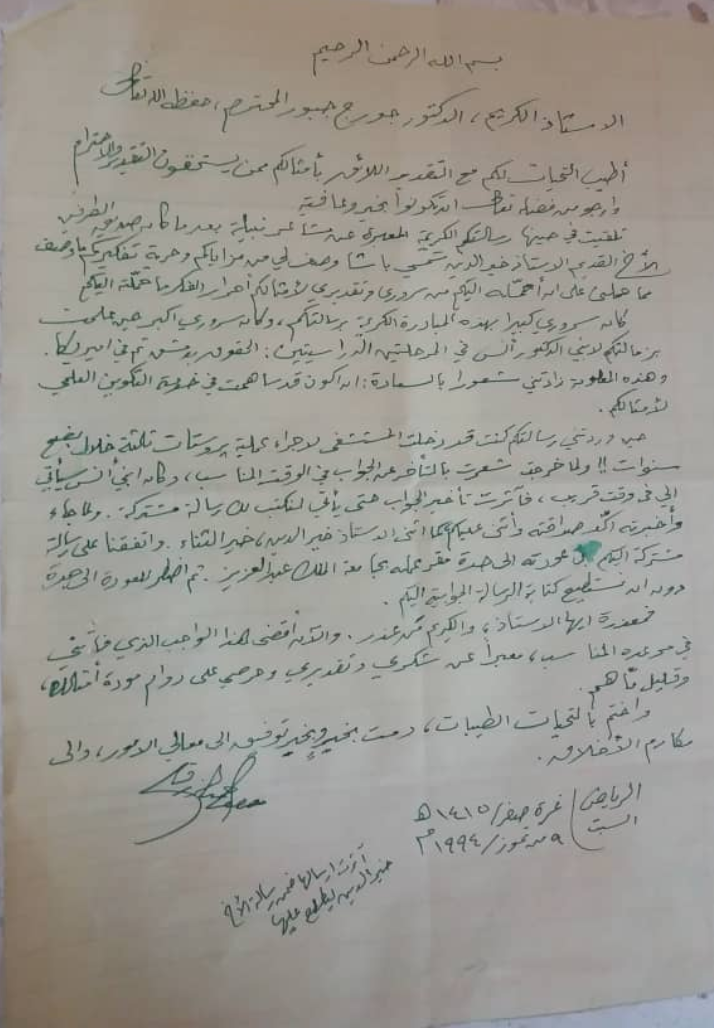 بسم الله الرحمن الرحيم
الاستاذ الكريم، الدكتور جورج جبور المحترم، حفظه الله تعالى
أطيب التحيات لكم مع التقدير اللائق بأمثالكم ممن يستحقون التقدير والاحترام
وأرجو من فضله تعالى ان تكونوا بخير وعافية
تلقيت في حينها رسالتكم الكريمة المعبرة عن مشاعر نبيلة بعد ما كان صديق الطرفين
الأخ القديم الاستاذ خير الدين شمسي باشا وصف لي من مزاياكم وحرية تفكيركم ما وصف
مما حملني على ان أحمّله اليكم من سروري وتقديري لأمثالكم أحرار الفكر ما حمّله اليكم
كان سروري كبيرا بهذه المبادرة الكريمة برسالتكم، وكان سروري اكبر حين علمت
بزمالتكم لابني الدكتور أنس في المرحلتين الدراسيتين: الحقوق بدمشق ثم في اميركا.
وهذه المعلومة زادتني شعورا بالسعادة: ان اكون قد ساهمت في خدمة التكوين العلمي
لأمثالكم.
حين وردتني رسالتكم كنت قد دخلت المستشفى لاجراء عملية بروستات ثلاثة خلال بضع
سنوات!! ولما خرجت شعرت بالتأخر عن الجواب في الوقت المناسب، وكان ابني أنس سيأتي
إلي في وقت قريب، فآثرت تأخير الجواب حتى يأتي لنكتب لك رسالة مشتركة. ولما جاء
وأخبرته أكّد صداقته وأثنى عليكم كما اثنى الاستاذ خير الدين، خير الثناء. واتفقنا على رسالة
مشتركة اليكم قبل عودته الى جدة مقر عمله بجامعة الملك عبد العزيز. ثم اضطر للعودة الى جدة
دون ان نستطيع كتابة الرسالة الجوابية اليكم.
فمعذرة ايها الاستاذ، والكريم مَن عذر. والآن أقضي هذا الواجب الذي فاتني
في موعده المناسب، معبراً عن شكري وتقديري وحرصي على دوام مودة أمثالك،
وقليل مّا هم.
واختم بالتحيات الطيبات، دمت بخير وبخيرٍ توفيق الى معالي الامور، والى
مكارم الأخلاق.
الرياض / غرة صفر / ١٤١٥ هـ
السبت / ٩ من تموز / ١٩٩٤ م
آثرت ارسالها ضمن رسالة الأخ
خير الدين ليطلع عليها